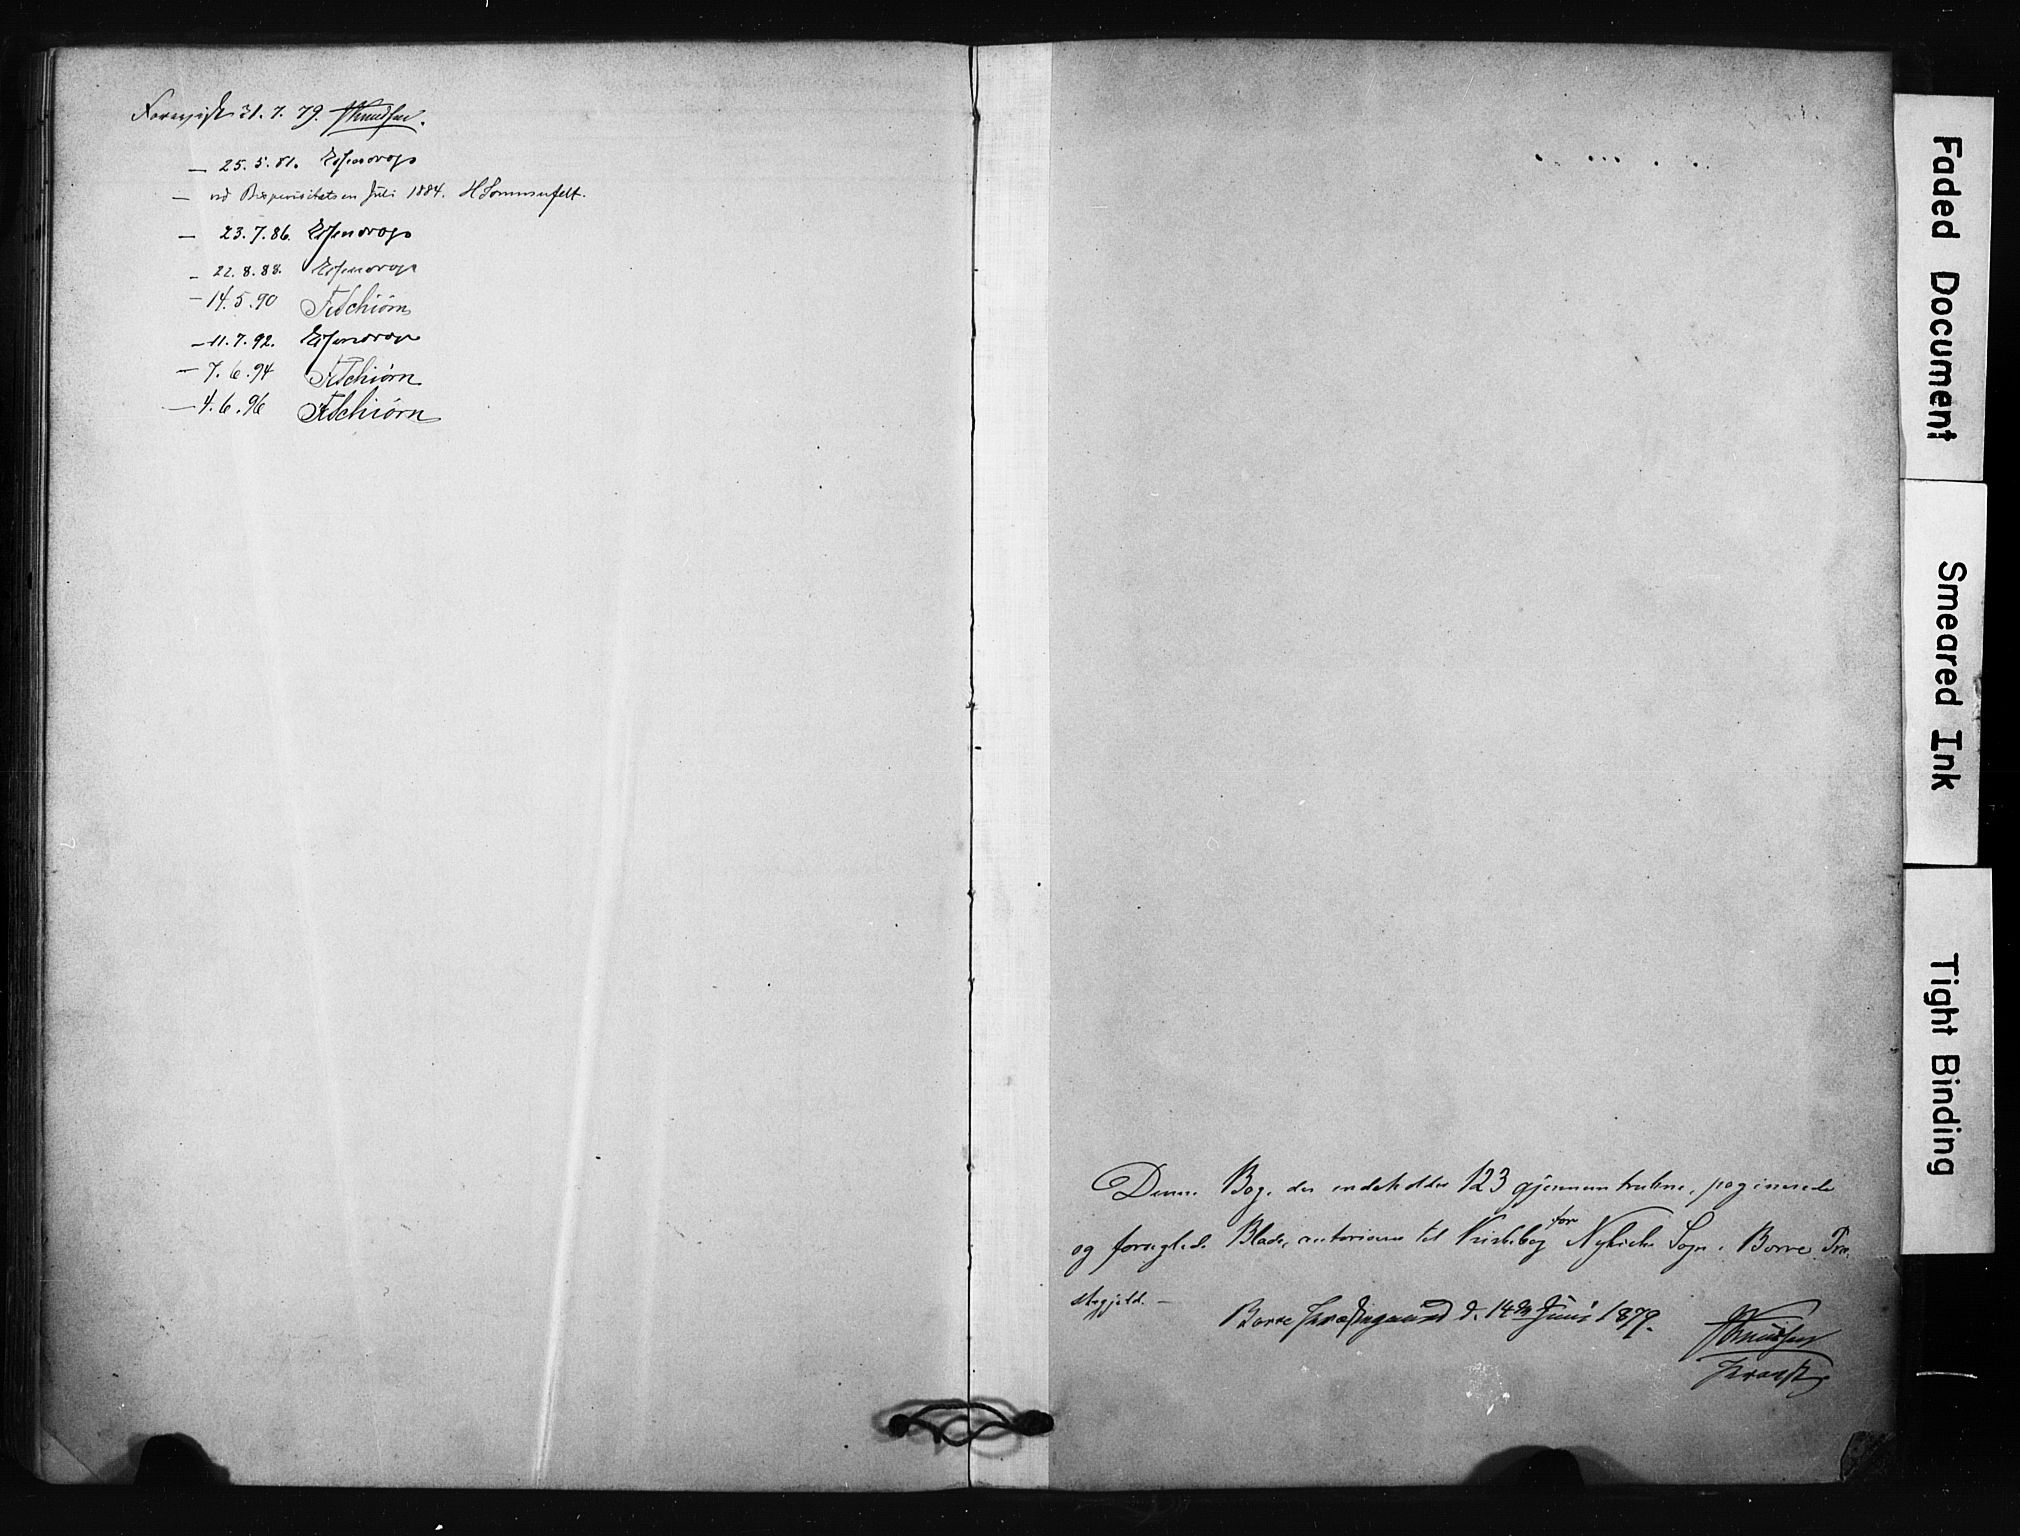 Forevist 31.7.79. JKnudsen.
— 25.5.81. Essendrop
— ved Bispevisitatsen Juli 1884. H Sommerfelt.
— 23.7.86. Essendrop
— 22.8.88. Essendrop
— 14.5.90 Fr Schiörn
— 11.7.92. Essendrop
— 7.6.94 Fr Schiörn
— 4.6.96 Fr Schiörn
Denne Bog, der indeholder 123 gjennemtrukne, paginerede
og forseglede Blade, autoriseres til Kirkebog for Nykirke Sogn i Borre Præ-
stegjeld. —
Borre Præstegaard d. 14de Juni 1879.
JKnudsen
Provst
Faded Document
Smeared Ink
Tight Binding